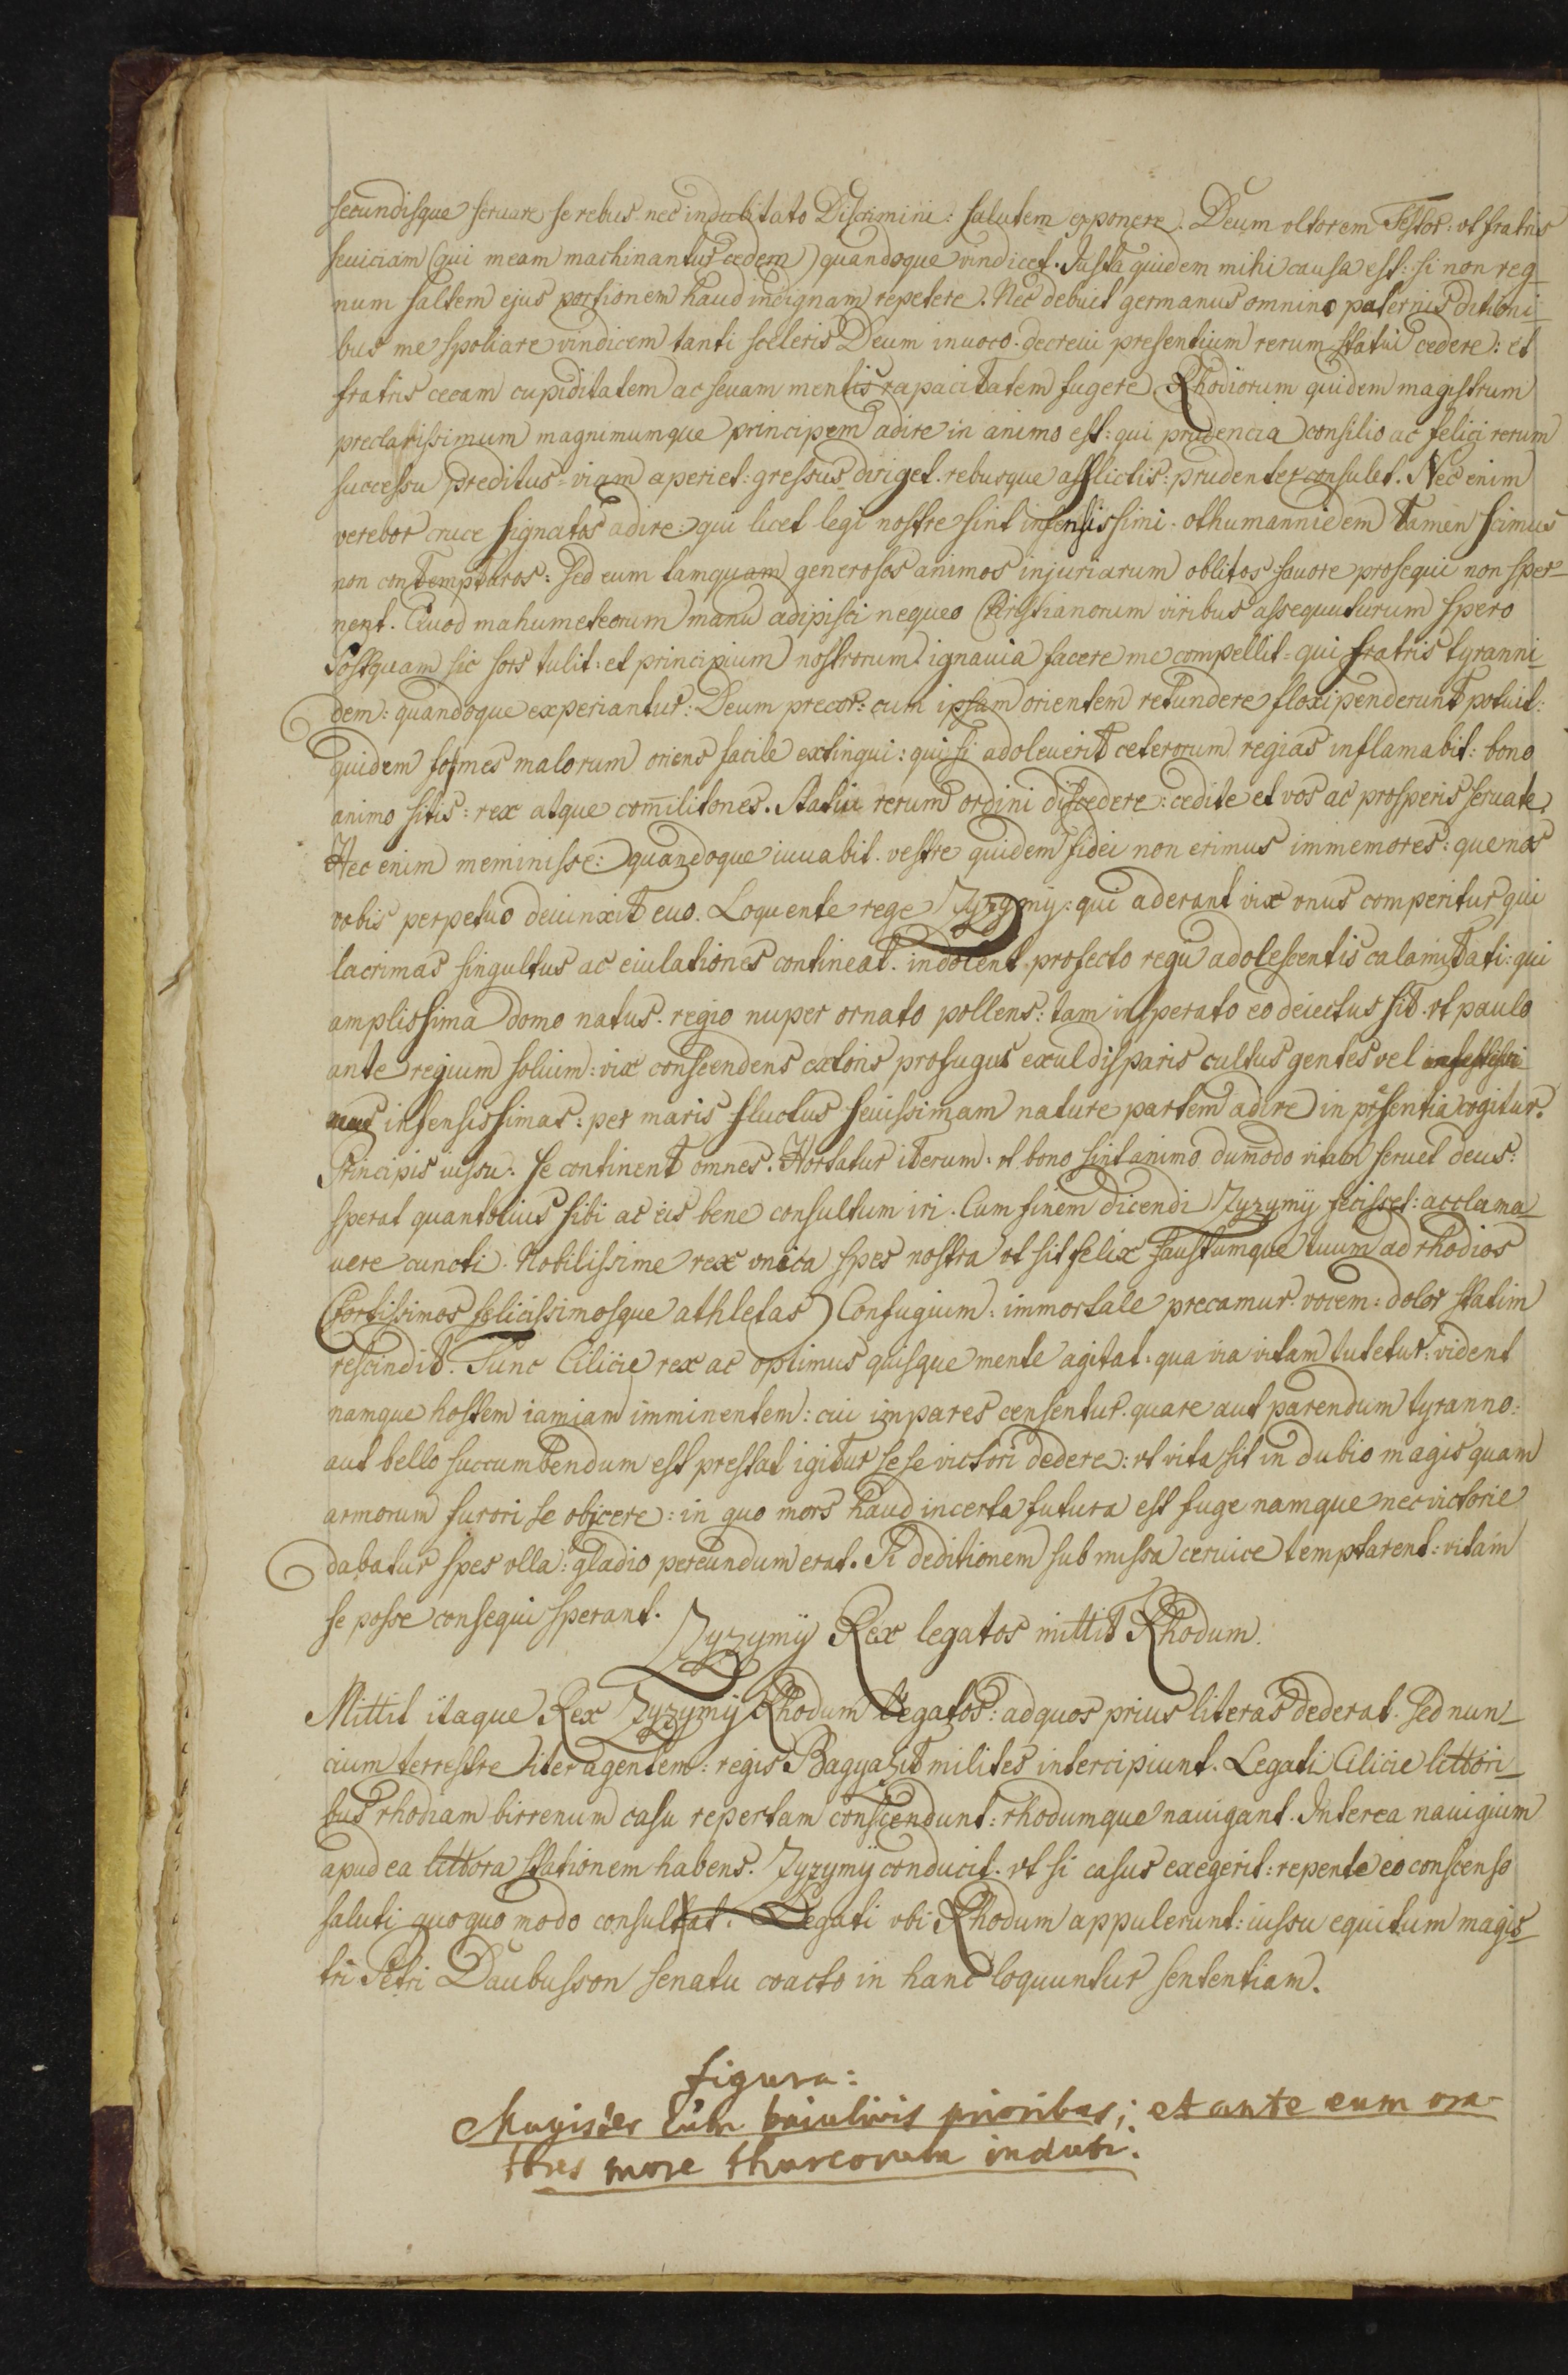 secundisque seruare se rebus nec indubitato Discrimini: salutem exponere. Deum vltorem Testor: vt fratris
seuiciam (qui meam machinantus cedem) quandoque vindicet. Justa quidem mihi causa est: si non reg-
num saltem ejus portionem haud indignam repetere. Nec debuit germanus omnino paternis ditioni-
bus me spoliare vindicem tanti sceleris Deum inuoco. decreui presentium rerum statui cedere: et
fratris cecam cupiditatem ac seuam mentis rapacitatem fugere. Rhodiorum quidem magistrum
preclarissimum magnimumque principem adire in animo est: qui prudencia consilio ac felici rerum
successu preditus viam aperiet: gressus diriget. rebusque afflictis: prudenter consulet. Nec enim
verebor cruce signatos adire: qui licet legi nostre sint infensissimi. othumannidem tamen scimus
non contempturos: sed eum tamquam generosos animos injuriarum oblitos fauore prosequi non sper-
nent. Quod mahumeteorum manu adipisci nequeo Christianorum viribus assequuturum spero
Postquam sic sors tulit: et principium nostrorum ignauia facere me compellit: qui fratris tyranni-
dem: quandoque experiantur: Deum precor: cum ipsam orientem retundere floxipenderunt potuit:
quidem fomes malorum oriens facile extingui: qui si adoleuerit ceterorum regias inflamabit: bono
animo sitis: rex atque comilitones. Statui rerum ordini discedere: cedite et vos ac prosperis seruate.
Hec enim meminisse: quandoque iuuabit. vestre quidem fidei non erimus immemores: que nos
vobis perpetuo deuinxit euo. Loquente rege Zyzymy: qui aderant vix vnus comperitur qui
lacrimas singultus ac eiulationes contineat. indolent profecto regii adolescentis calamitati: qui
amplissima domo natus. regio nuper ornato pollens: tam insperato eo deiectus sit. vt paulo
ante regium solium: vix conscendens extoris profugus exul disparis cultus gentes vel
infensissimas: per maris fluctus seuissimam nature partem adire in presentia cogitur.
Principis iussu: se continent omnes. Hortatur iterum: vt bono sint animo dumodo vitam seruet deus:
sperat quantotius sibi ac eis bene consultum iri. Cum finem dicendi Zyzymy fecisset: acclama-
uere cuncti. Nobilissime rex vnica spes nostra vt sit felix faustumque tuum ad rhodios
(fortissimos felicissimosque athletas) Confugium: immortale precamur. vocem: dolor statim
rescindit. Tunc Cilicie rex ac optimus quisque mente agitat: qua via vitam tutetur: vident
namque hostem iamiam imminentem: cui impares censentur. quare aut parendum tyranno:
aut bello succumbendum est prestat igitur sese victori dedere: vt vita sit in dubio magis quam
armorum furori se objcere: in quo mors haud incerta futura est fuge namque nec victorie
dabatur spes vlla: gladio pereundum erat. Si deditionem submissa ceruice temptarent: vitam
se posse consequi sperant.
Zyzymy Rex legatos mittit Rhodum.
Mittit itaque Rex Zyzymy Rhodum Legatos: ad quos prius literas dederat. Sed nun-
cium terrestre iter agentem: regis Bagyazit milites intercipiunt. Legati Cilicie littori-
bus rhodiam birrenum casu repertam conscendunt: rhodumque nauigant. Interea nauigium
apud ea littora stationem habens. Zyzymy conducit. vt si casus exegerit: repente eo conscenso
saluti quoquo modo consultat. Legati vbi Rhodum appulerunt: iussu equitum magis-
tri Petri Daubusson senatu coacto in hanc loquuntur sententiam.
figura:
Magister cum baiulivis prioribus; et ante eum ora-
tores more thurcorum induti.